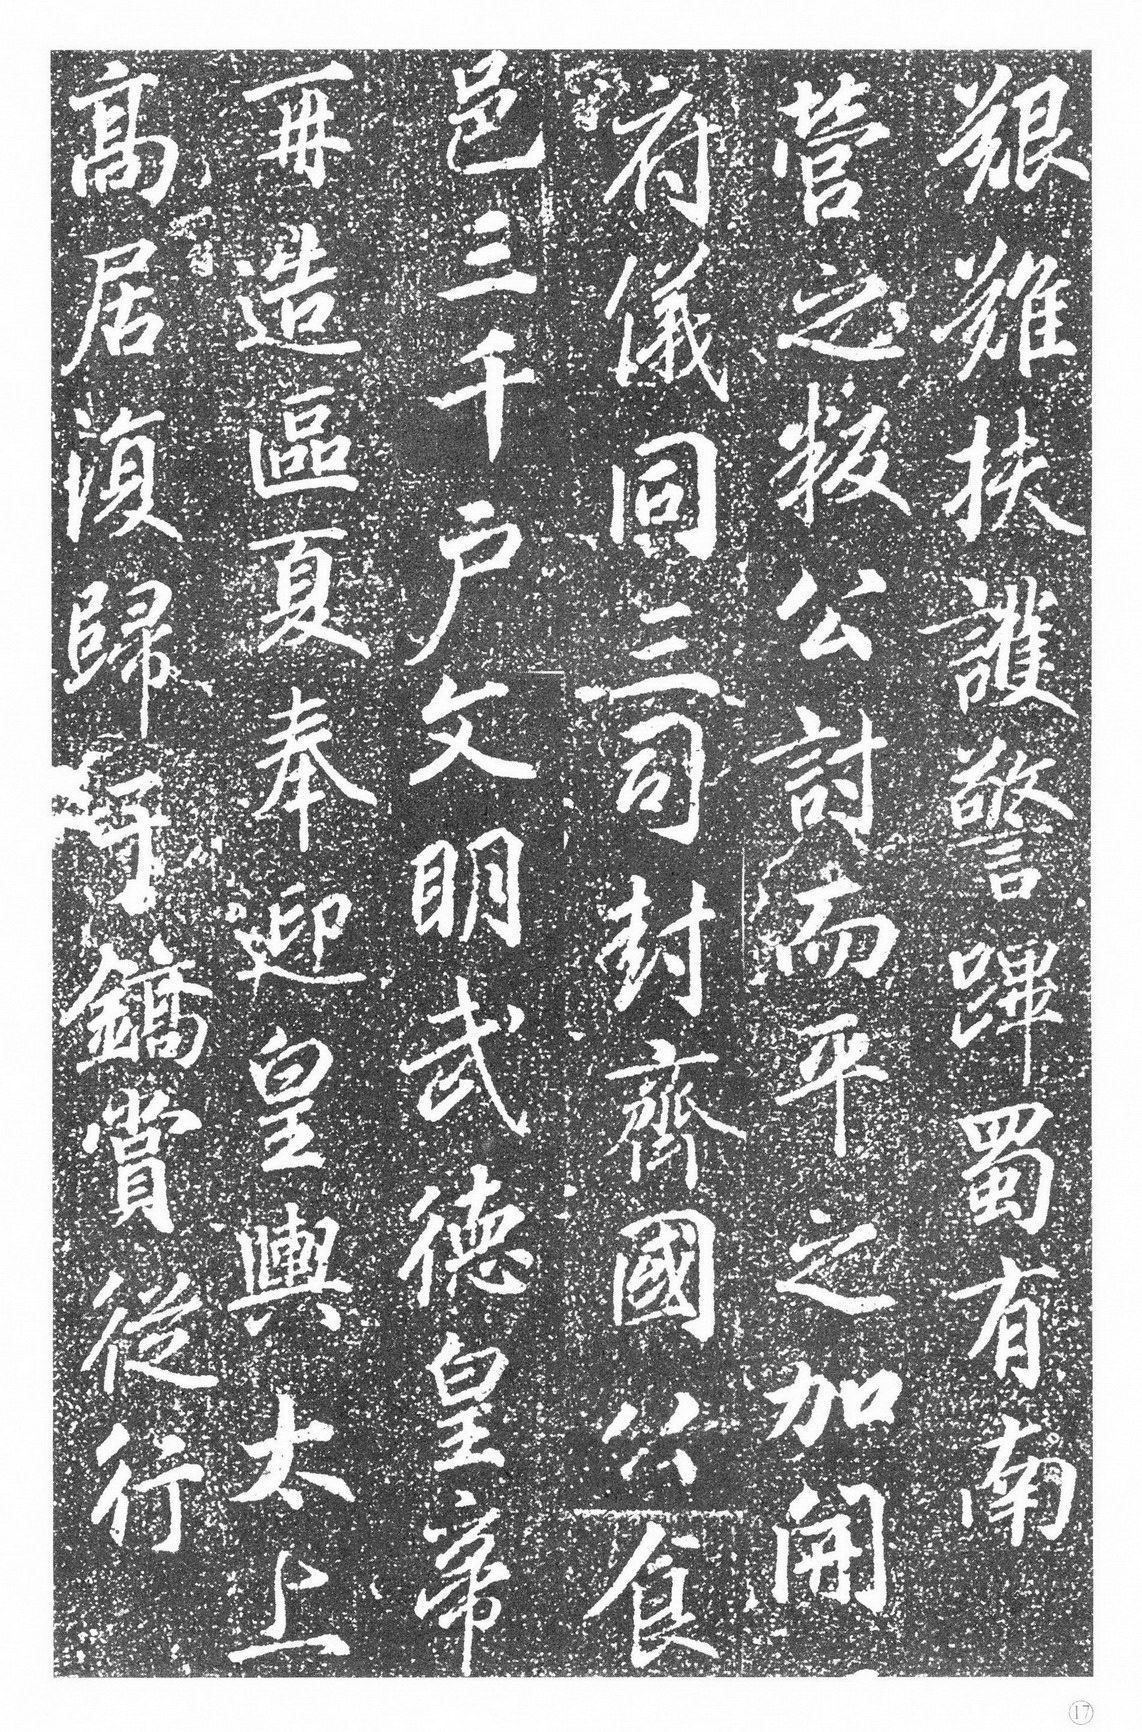 艱難扶護警蹕蜀有南
營之叛公討而平之加開
府儀同三司封齊國公食
邑三千戶文明武德皇帝
再造區夏奉迎皇輿太上
高居復歸鎬賞從行
17